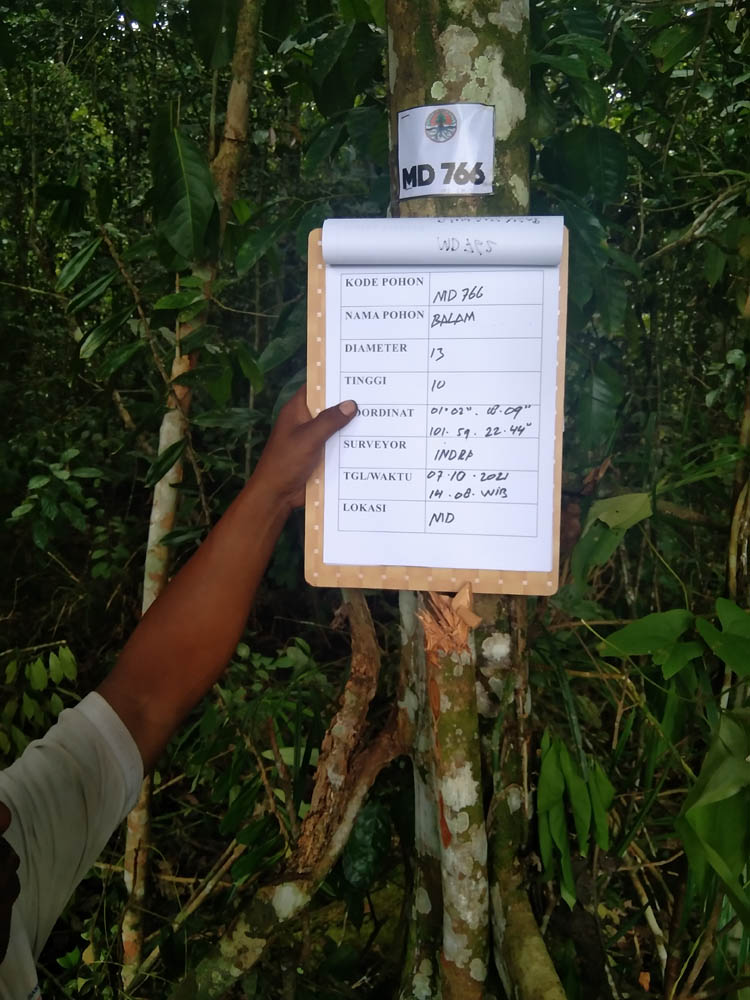 MD 766
KODE POHON MD 766
NAMA POHON BALAM
DIAMETER 13
TINGGI 10
OORDINAT 01°02" . 18.09"
101 . 59 . 22.44"
SURVEYOR INDRA
TGL/WAKTU 07.10.2021
14.08.WIB
LOKASI MD